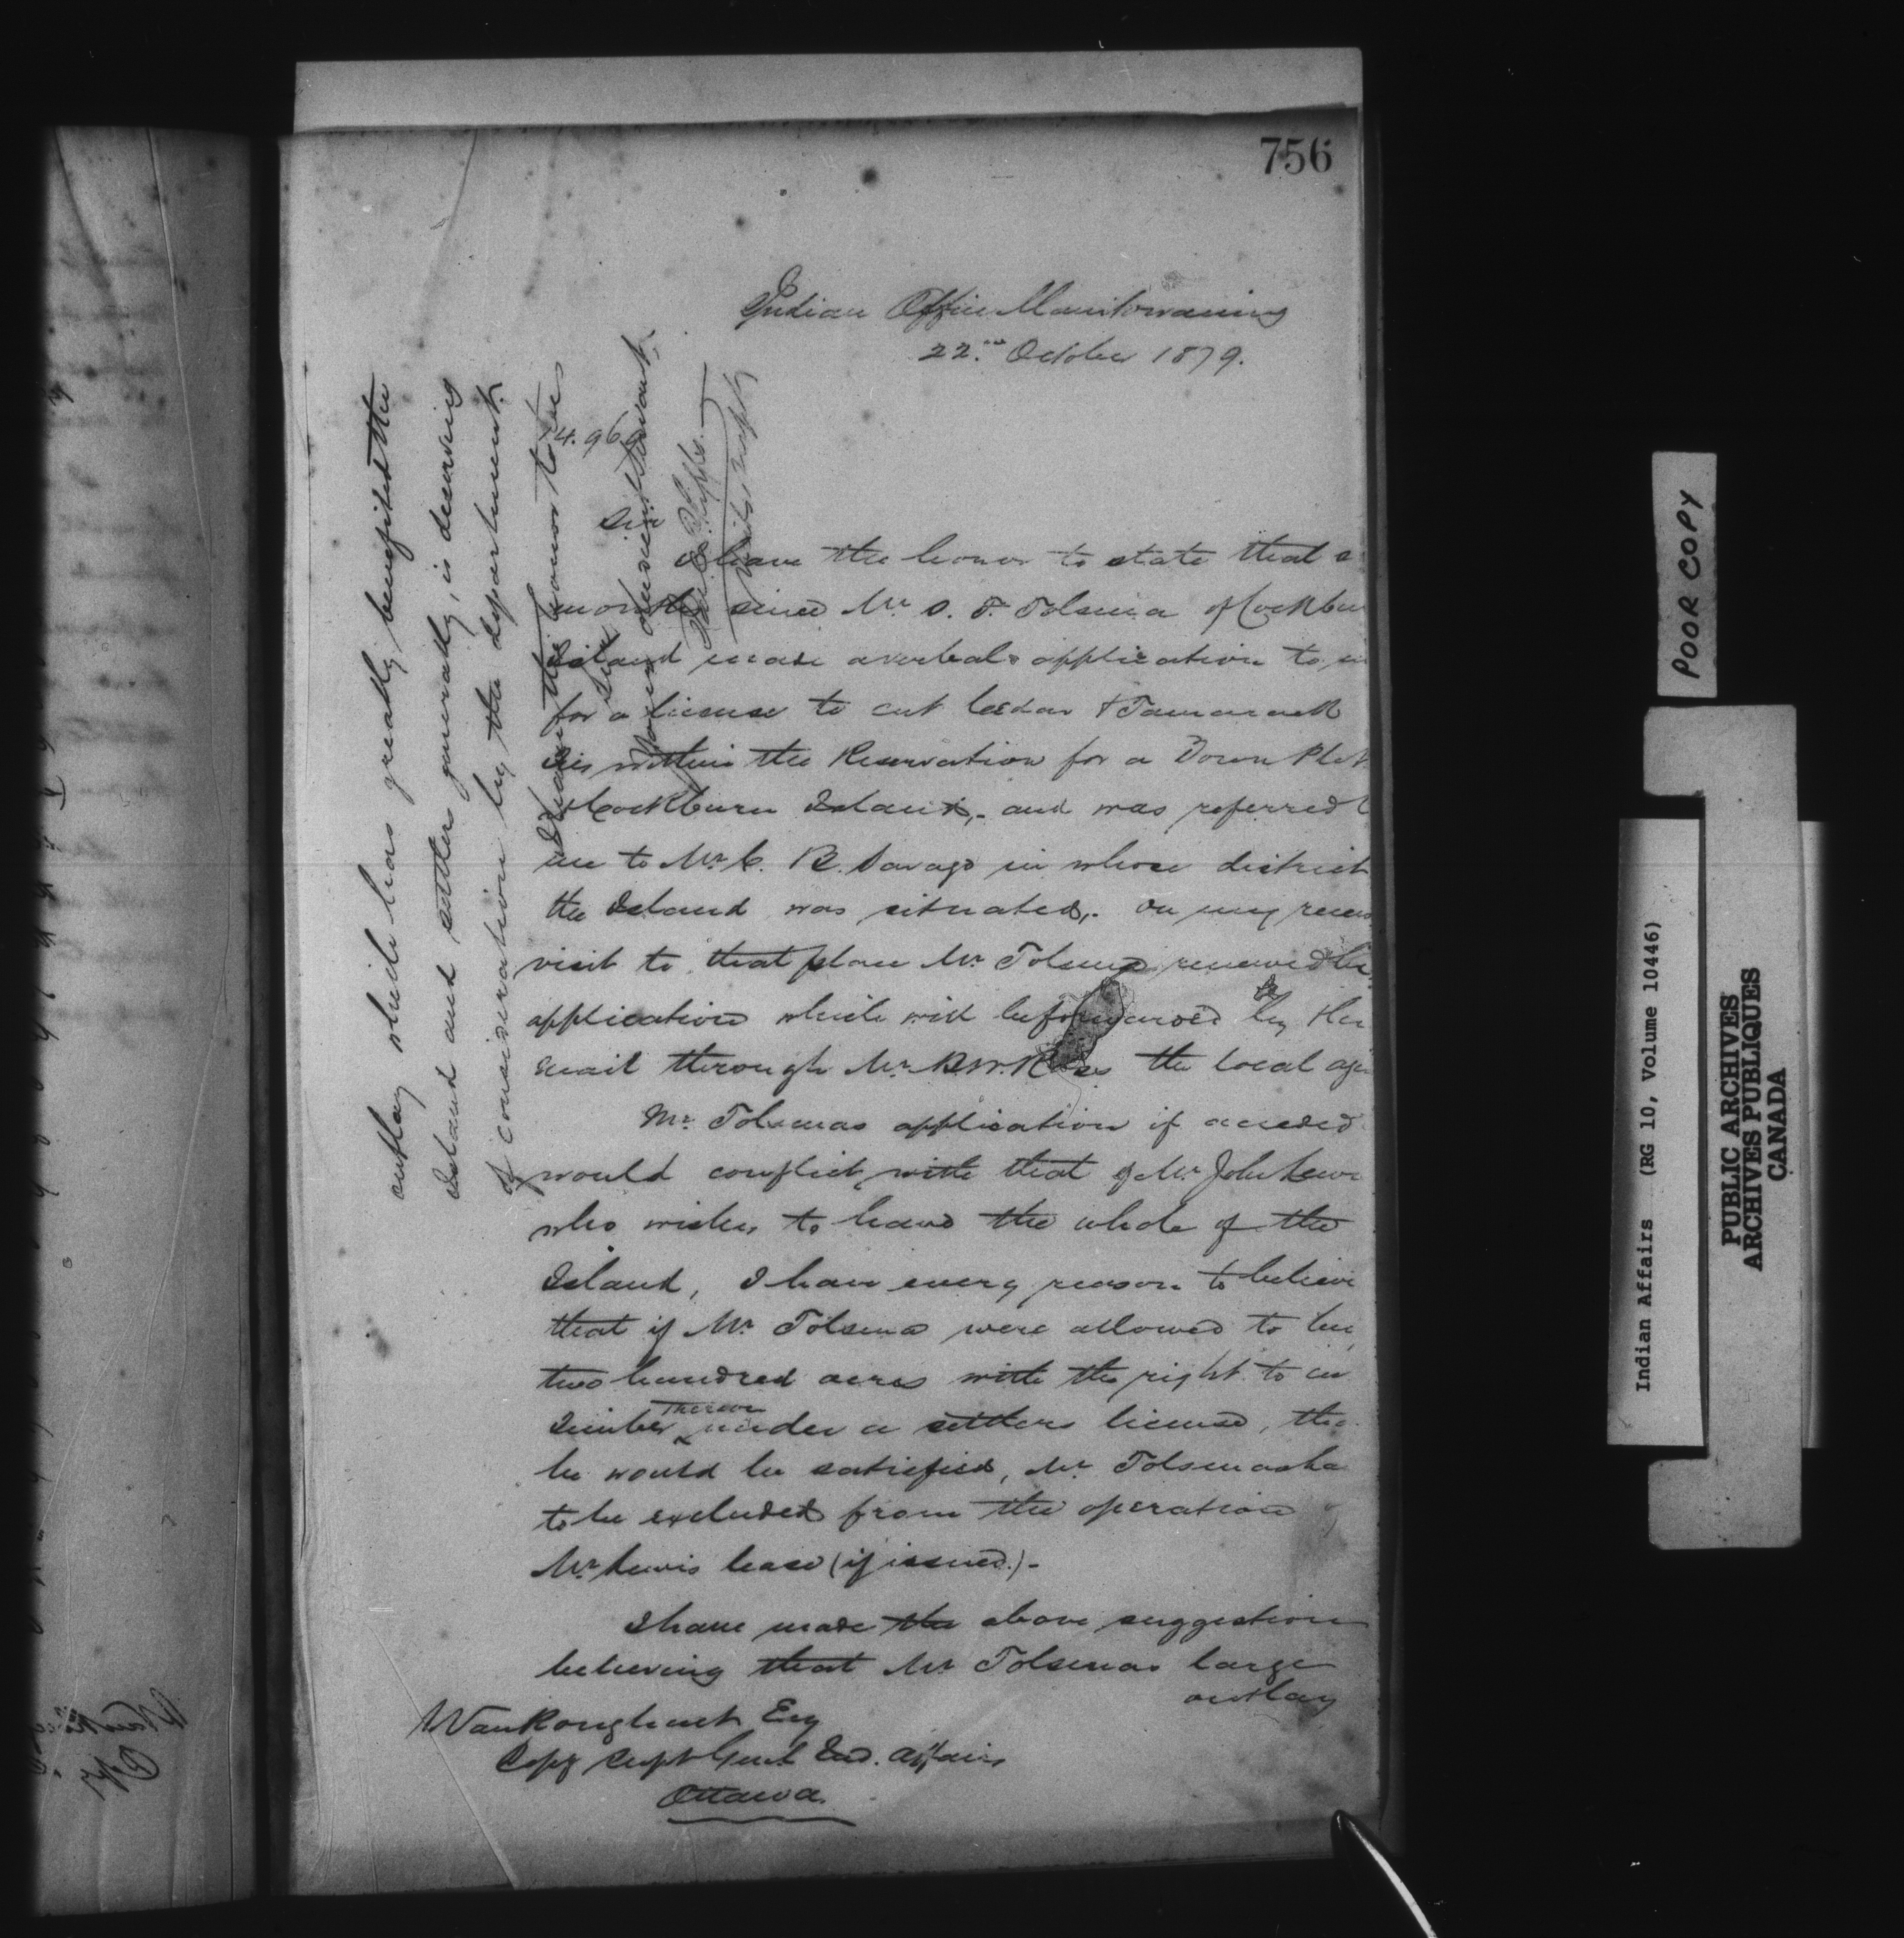 756
Indian Office Manitowaning
22nd October 1879.
14.969
Sir
I have the honor to state that a
month since Mr S. F. Tolsma of Cockbu
Island made a verbal application to m
for a license to cut Cedar & Tamarack
ties within the Reservation for a Town Plot
Cockburn Island,- and was referred
me to Mr C. B. Savage in whose district
the Island was situated,. On my recen
visit to that place Mr Tolsma renewed his
application which will be forwarded by
mail through Mr B.W. Ross the local age
Mr Tolsmas application if acceded
would conflict with that of Mr John Lewi
who wishes to lease the whole of the
Island, I have every reason to believe
that if Mr Tolsma were allowed to
two hundred acres with the right to cu
timber thereon under a settlers license, tha
he would be satisfied, Mr Tolsmas
to be excluded from the operation of
Mr Lewis lease (if issued.)-
I have made the above suggestion
believing that Mr Tolsmas large
outlay
VanKoughnet Esq
Depy Supt Genl Ind. Affairs
Ottawa.
outlay which has greatly benefited the
Island and settlers generally, is deserving
of consideration by the department.
I have the honor to be
Sir
Your obedient Servant.
Jas. C. Phipps.
Visitg Supt
POOR COPY
Indian Affairs (RG 10, Volume 10446)
PUBLIC ARCHIVES
ARCHIVES PUBLIQUES
CANADA